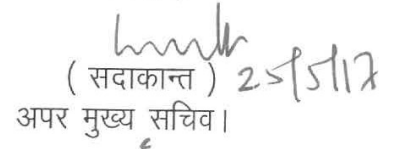 ( सदाकान्त ) 25/5/17
अपर मुख्य सचिव।